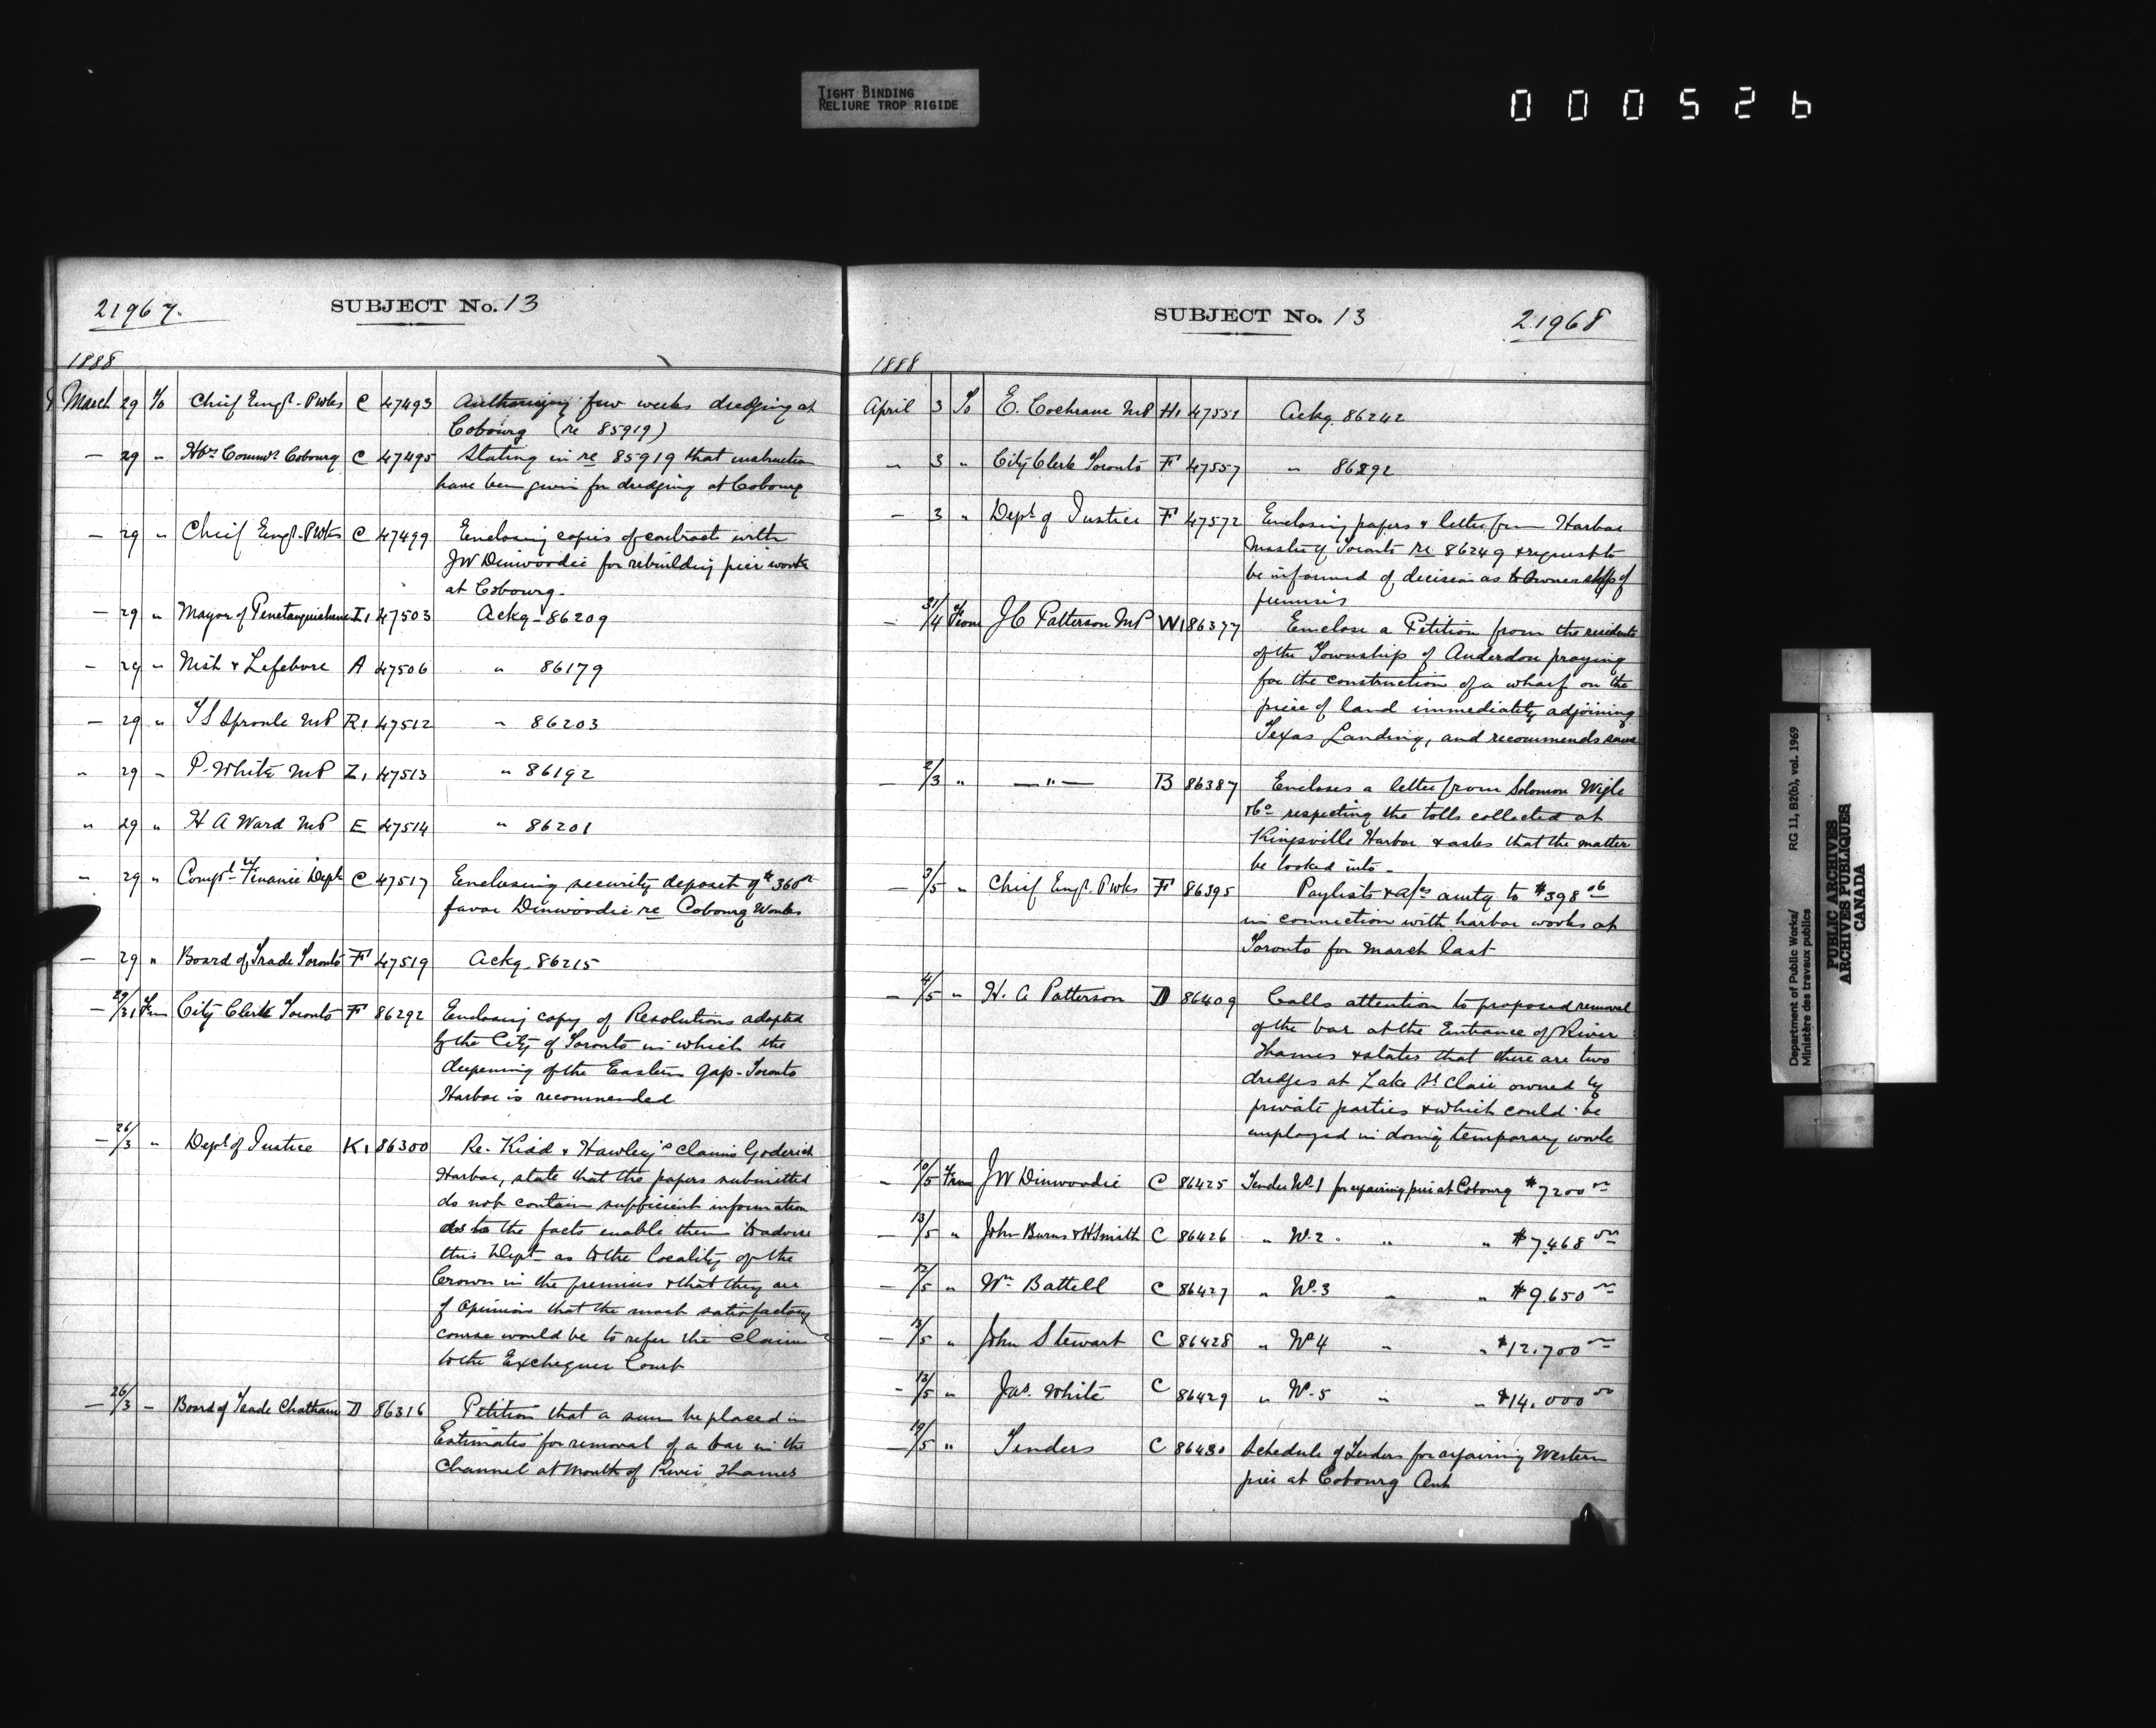 TIGHT BINDING
RELIURE TROP RIGIDE
000526
21967.
SUBJECT No. 13
1888
March 29 To Chief Engr. P Wks C 47493 Authorizing few weeks dredging at
Cobourg (re 85919)
— 29 " Hbr Commrs Cobourg C 47495 Stating in re 85919 that instruction
have been given for dredging at Cobourg
— 29 " Chief Engr. P Wks C 47499 Enclosing copies of contract with
JW Dinwoodie for rebuilding pier work
at Cobourg-
— 29 " Mayor of Penetanguishene I1 47503 Ackg- 86209
— 29 " Nish & Lefebvre A 47506 " 86179
— 29 " T S Sproule MP R1 47512 " 86203
" 29 " P. White MP Z1 47513 " 86192
" 29 " H A Ward MP E 47514 " 86201
" 29 " Compt. of Finance Dept C 47517 Enclosing security deposit of $360
favor Dinwoodie re Cobourg Works
— 29 " Board of Trade Toronto F 47519 Ackg. 86215
— 29/31 From City Clerk Toronto F 86292 Enclosing copy of Resolutions adopted
by the City of Toronto in which the
deepening of the Eastern Gap-Toronto
Harbor is recommended
— 26/3 " Dept of Justice K1 86300 Re. Kidd & Hawley's claims Goderich
Harbor, state that the papers submitted
do not contain sufficient information
as to the facts enable them to advise
this Dept as to the locality of the
Crown in the premises & that they are
of opinion that the most satisfactory
course would be to refer the claim
to the Exchequer Court
— 26/3 — Board of Trade Chatham D 86316 Petition that a sum be placed in
Estimates for removal of a bar in the
Channel at mouth of River Thames
SUBJECT No. 13
21968
1888
April 3 To E. Cochrane MP H1 47551 Ackg. 86242
" 3 " City Clerk Toronto F 47557 " 86292
— 3 " Dept of Justice F 47572 Enclosing papers & letter from Harbor
Master of Toronto re 86249 & request to
be informed of decision as to ownership of
premises
— 31/4 From J C Patterson MP W1 86377 Enclose a Petition from the residents
of the Township of Anderdon praying
for the construction of a wharf on the
piece of land immediately adjoining
Texas Landing, and recommends same
— 2/3 " — " — B 86387 Encloses a letter from Solomon Wigle
&Co respecting the tolls collected at
Kingsville Harbor & asks that the matter
be looked into-
— 3/5 " Chief Engr. P Wks F 86395 Paylists & a/cs amtg to $398.06
in connection with harbor works at
Toronto for March last
— 4/5 " H. A Patterson D 86409 Calls attention to proposed removal
of the bar at the Entrance of River
Thames & states that there are two
dredges at Lake St Clair owned by
private parties & which could be
employed in doing temporary work
— 10/5 From JW Dinwoodie C 86425 Tender No. 1 for repairing pier at Cobourg $7200
— 13/5 " John Burns & H Smith C 86426 " No. 2. " " $7,468
— 12/5 " Wm Battell C 86427 " No. 3 " " $9.650
— 12/5 " John Stewart C 86428 " No 4 " " $12.700
- 12/5 " Jas. White C 86429 " No. 5 " " $14.000
— 19/5 " Tenders C 86430 Schedule of Tenders for repairing Western
pier at Cobourg Ont
Department of Public Works/ RG 11, B2(b), vol. 1969
Ministère des travaux publics
PUBLIC ARCHIVES
ARCHIVES PUBLIQUES
CANADA